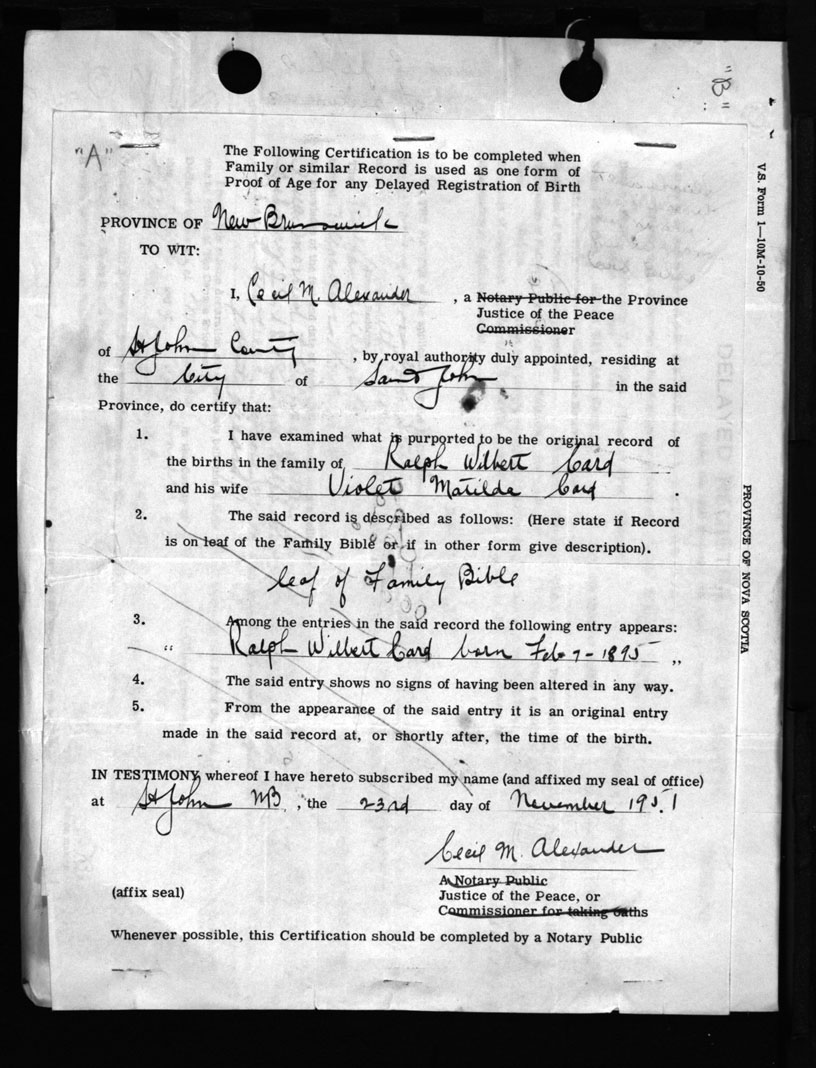 "B"
"A"
The Following Certification is to be completed when
Family or similar Record is used as one form of
Proof of Age for any Delayed Registration of Birth
PROVINCE OF New Brunswick
TO WIT:
I, Cecil M. Alexander, a Notary Public for the Province
Justice of the Peace
Commissioner
of St John County, by royal authority duly appointed, residing at
the City of Saint John in the said
Province, do certify that:
1. I have examined what is purported to be the original record of
the births in the family of Ralph Wilbert Card
and his wife Violet Matilda Card.
2. The said record is described as follows: (Here state if Record
is on leaf of the Family Bible or if in other form give description).
leaf of Family Bible
3. Among the entries in the said record the following entry appears:
" Ralph Wilbert Card born Feb 7 - 1895 "
4. The said entry shows no signs of having been altered in any way.
5. From the appearance of the said entry it is an original entry
made in the said record at, or shortly after, the time of the birth.
IN TESTIMONY whereof I have hereto subscribed my name (and affixed my seal of office)
at St John NB, the 23rd day of November 1951
Cecil M. Alexander
A Notary Public
(affix seal) Justice of the Peace, or
Commissioner for taking oaths
Whenever possible, this Certification should be completed by a Notary Public
V.S. Form 1—10M-10-50
PROVINCE OF NOVA SCOTIA